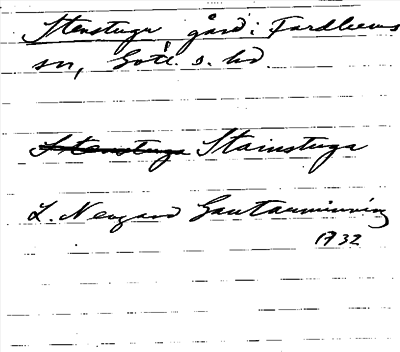 Stenstugu gård i Fardhems
sn, Gotl. s. hd.
Stenstuga Stainstuga
L. Neogard Gautauminning
1732